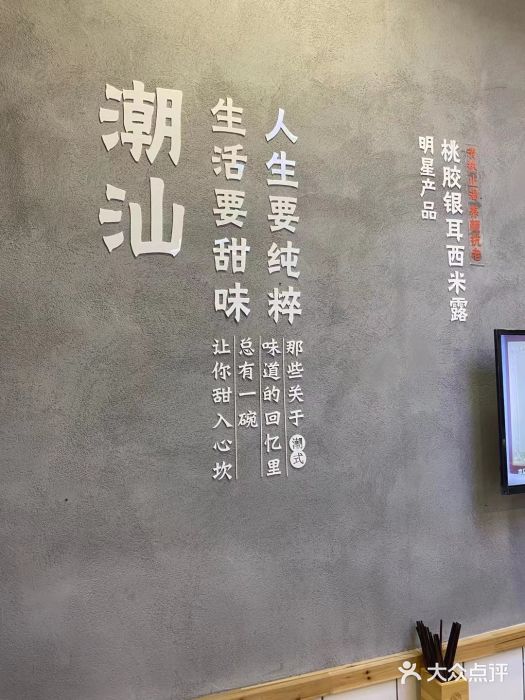 潮汕
人生要纯粹
生活要甜味
那些关于潮式
味道的回忆里
总有一碗
让你甜入心坎
桃胶银耳西米露
明星产品
大众点评